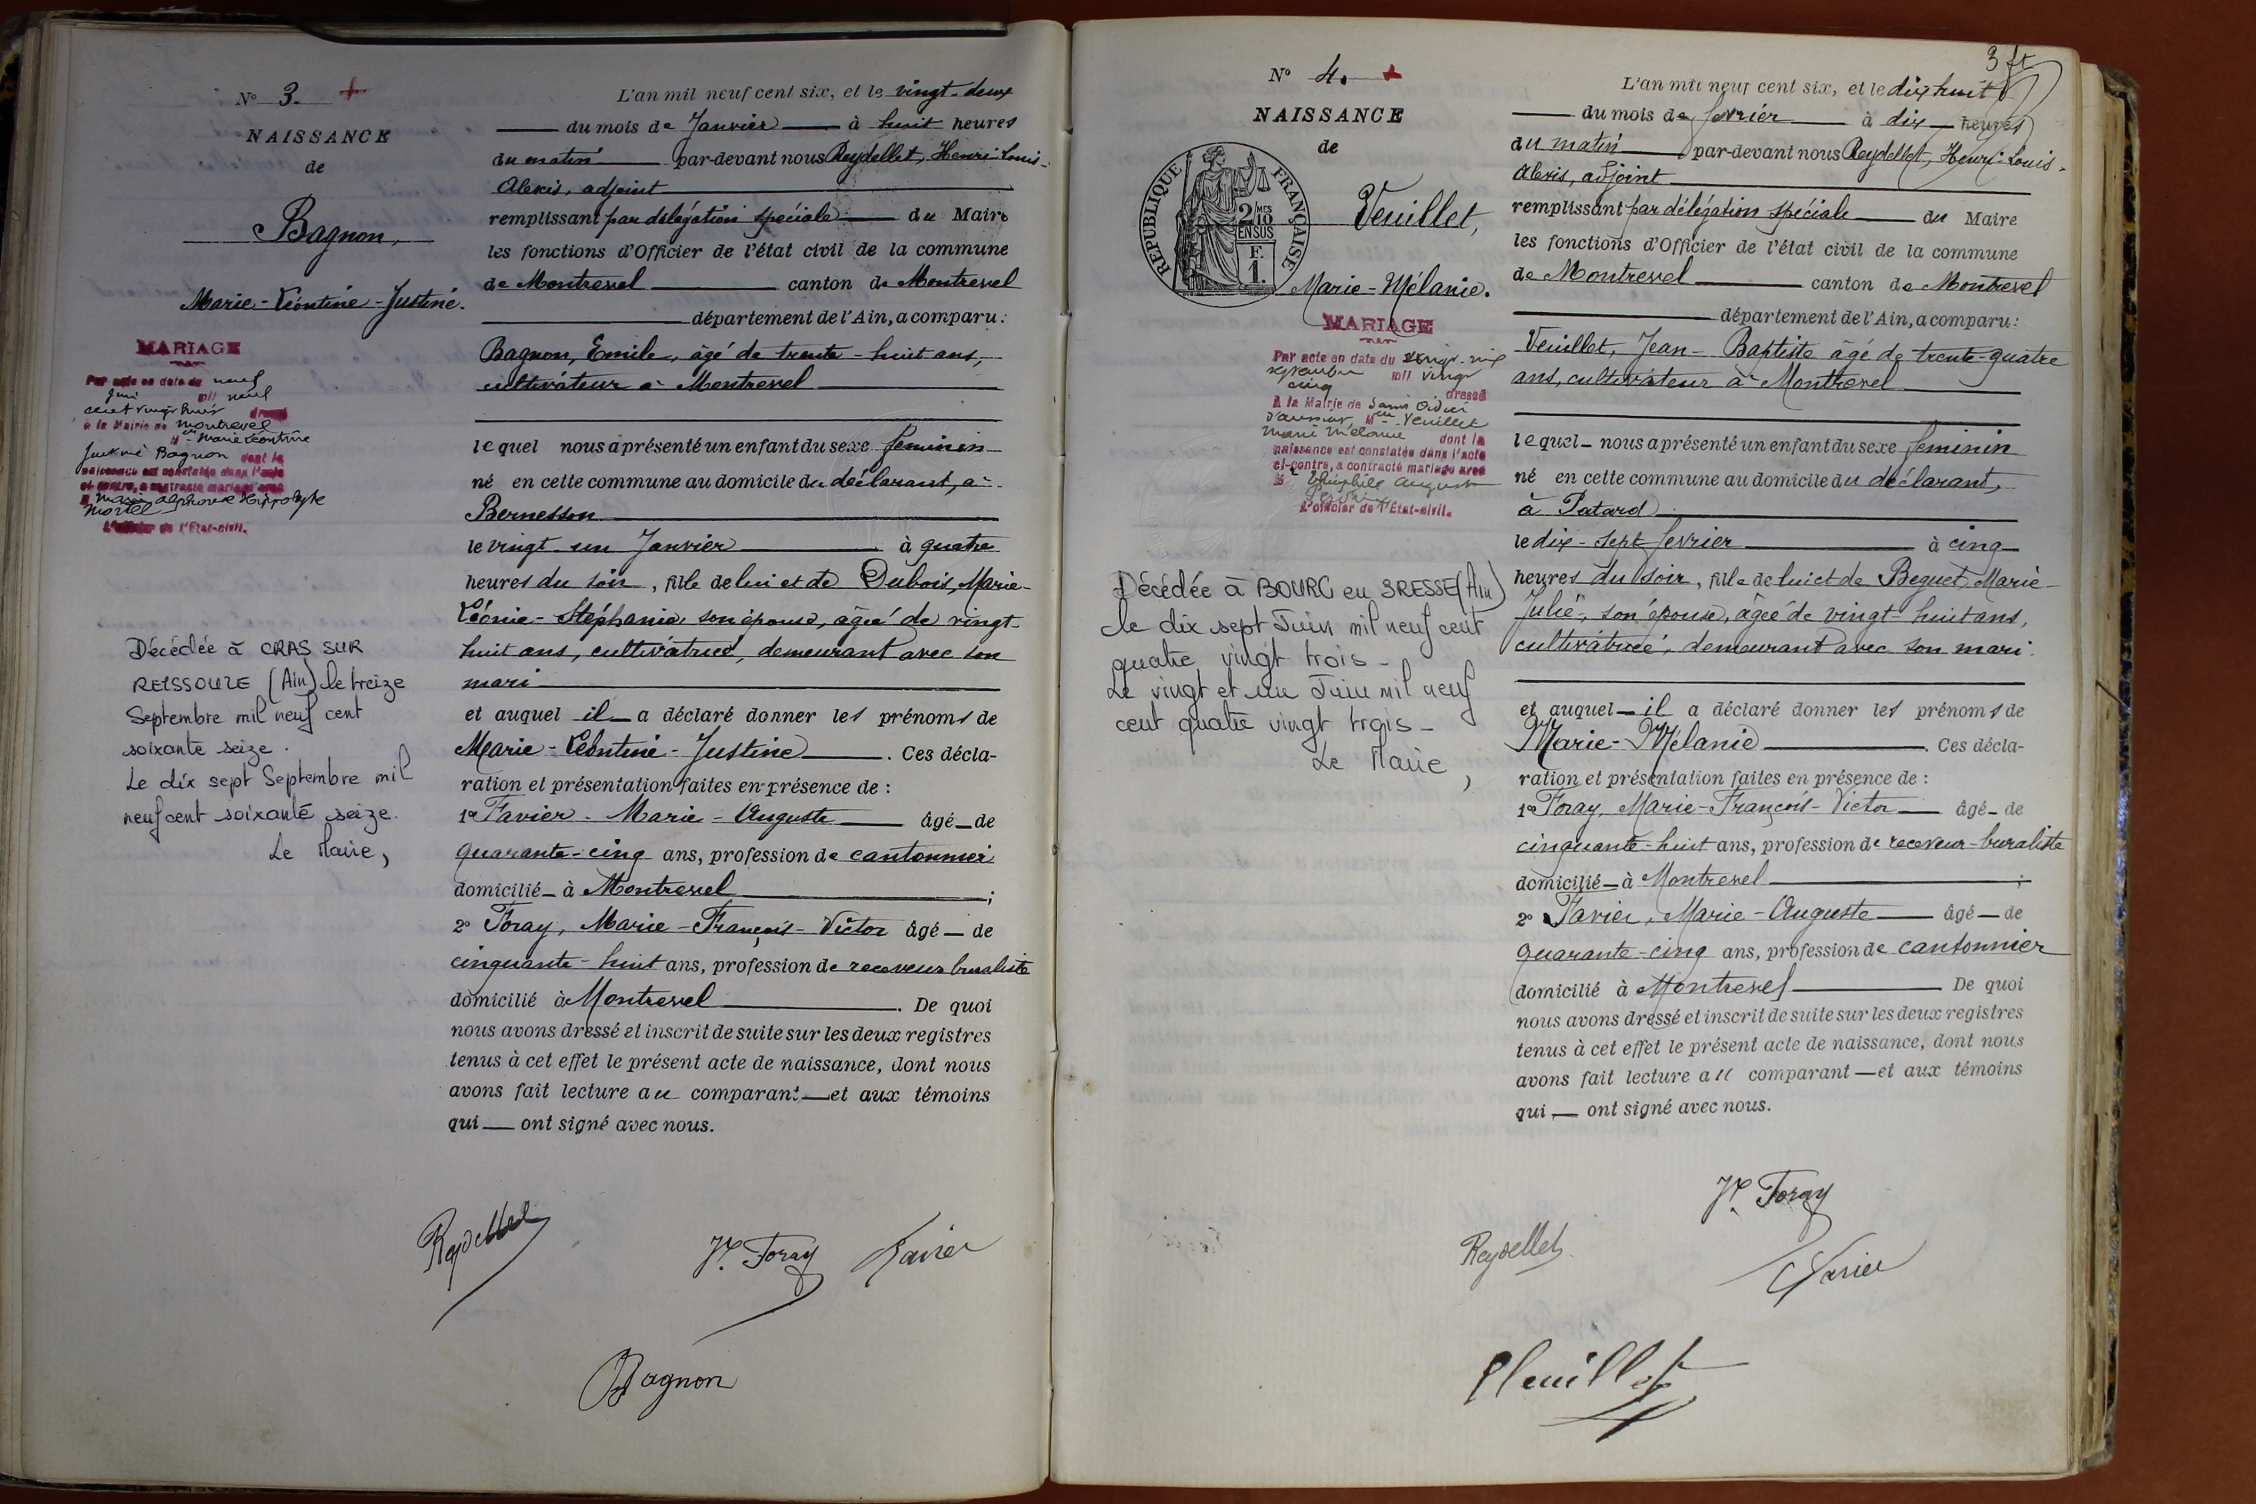 N° 3.
NAISSANCE
de
Bagnon,
Marie-Léontine-Justine.
MARIAGE
Par acte en date du neuf
juin mil neuf
cent vingt huit dressé
à la Mairie de Montrevel
Mlle Marie Léontine
Justine Bagnon dont la
naissance est constatée dans l'acte
ci-contre, a contracté mariage avec
M Marie Alphonse Hippolyte
Mortel
L'officier de l'Etat-civil.
Décédée à CRAS SUR
REYSSOUZE (Ain) le treize
Septembre mil neuf cent
soixante seize.
Le dix sept Septembre mil
neuf cent soixante seize.
Le Maire,
L'an mil neuf cent six, et le vingt-deux
du mois de Janvier à huit heures
du matin par-devant nous Reydellet, Henri-Louis-
Alexis, adjoint
remplissant par délégation spéciale du Maire
les fonctions d'Officier de l'état civil de la commune
de Montrevel canton de Montrevel
département de l'Ain, a comparu:
Bagnon, Emile, âgé de trente-huit ans,
cultivateur à Montrevel
lequel nous a présenté un enfant du sexe feminin
né en cette commune au domicile du déclarant, à
Bernesson
le vingt-un Janvier à quatre
heures du soir, fille de lui et de Dubois, Marie-
Léonie-Stéphanie, son épouse, âgée de vingt-
huit ans, cultivatrice, demeurant avec son
mari
et auquel il a déclaré donner les prénoms de
Marie-Léontine-Justine. Ces décla-
ration et présentation faites en présence de:
1º Favier-Marie-Auguste âgé de
quarante-cinq ans, profession de cantonnier
domicilié à Montrevel;
2º Foray, Marie-François-Victor âgé de
cinquante-huit ans, profession de receveur buraliste
domicilié à Montrevel. De quoi
nous avons dressé et inscrit de suite sur les deux registres
tenus à cet effet le présent acte de naissance, dont nous
avons fait lecture au comparant et aux témoins
qui ont signé avec nous.
Reydellet
Vr. Foray
Favier
Bagnon
3
N° 4.
NAISSANCE
de
RÉPUBLIQUE FRANÇAISE
2/10 MES
EN SUS
F.
1.
Veuillet,
Marie-Mélanie.
MARIAGE
Par acte en date du vingt-six
septembre mil vingt
cinq dressé
à la Mairie de Saint Didier
d'aussiat, Mlle Veuillet
Marie Mélanie dont la
naissance est constatée dans l'acte
ci-contre, a contracté mariage avec
M Théophile August
L'officier de l'Etat-civil.
Décédée à BOURG en BRESSE (Ain)
le dix sept Juin mil neuf cent
quatre vingt trois -
Le vingt et un Juin mil neuf
cent quatre vingt trois -
Le Maire,
L'an mil neuf cent six, et le dix huit
du mois de fevrier à dix heures
du matin par-devant nous Reydellet, Henri-Louis-
Alexis, adjoint
remplissant par délégation spéciale du Maire
les fonctions d'Officier de l'état civil de la commune
de Montrevel canton de Montrevel
département de l'Ain, a comparu:
Veuillet, Jean-Baptiste âgé de trente-quatre
ans, cultivateur à Montrevel
lequel nous a présenté un enfant du sexe feminin
né en cette commune au domicile du déclarant,
à Patard
le dix-sept fevrier à cinq
heures du soir, fille de lui et de Beguet, Marie-
Julie, son épouse, âgée de vingt-huit ans,
cultivatrice, demeurant avec son mari.
et auquel il a déclaré donner les prénoms de
Marie-Mélanie. Ces décla-
ration et présentation faites en présence de:
1º Foray, Marie-François-Victor âgé de
cinquante-huit ans, profession de receveur-buraliste
domicilié à Montrevel;
2º Favier, Marie-Auguste âgé de
quarante-cinq ans, profession de cantonnier
domicilié à Montrevel De quoi
nous avons dressé et inscrit de suite sur les deux registres
tenus à cet effet le présent acte de naissance, dont nous
avons fait lecture au comparant et aux témoins
qui ont signé avec nous.
Vr. Foray
Reydellet
Favier
Veuillet